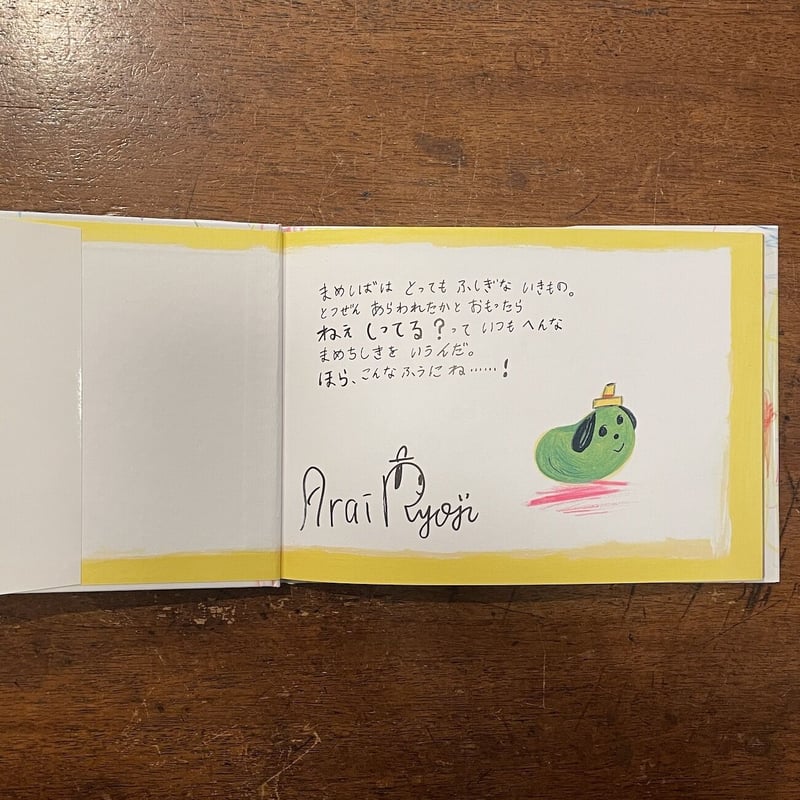 まめしばは とっても ふしぎな いきもの。
とつぜん あらわれたかと おもったら
ねぇ しってる?って いつも へんな
まめちしきを いうんだ。
ほら、こんな ふうに ね……!
Arai Ryoji